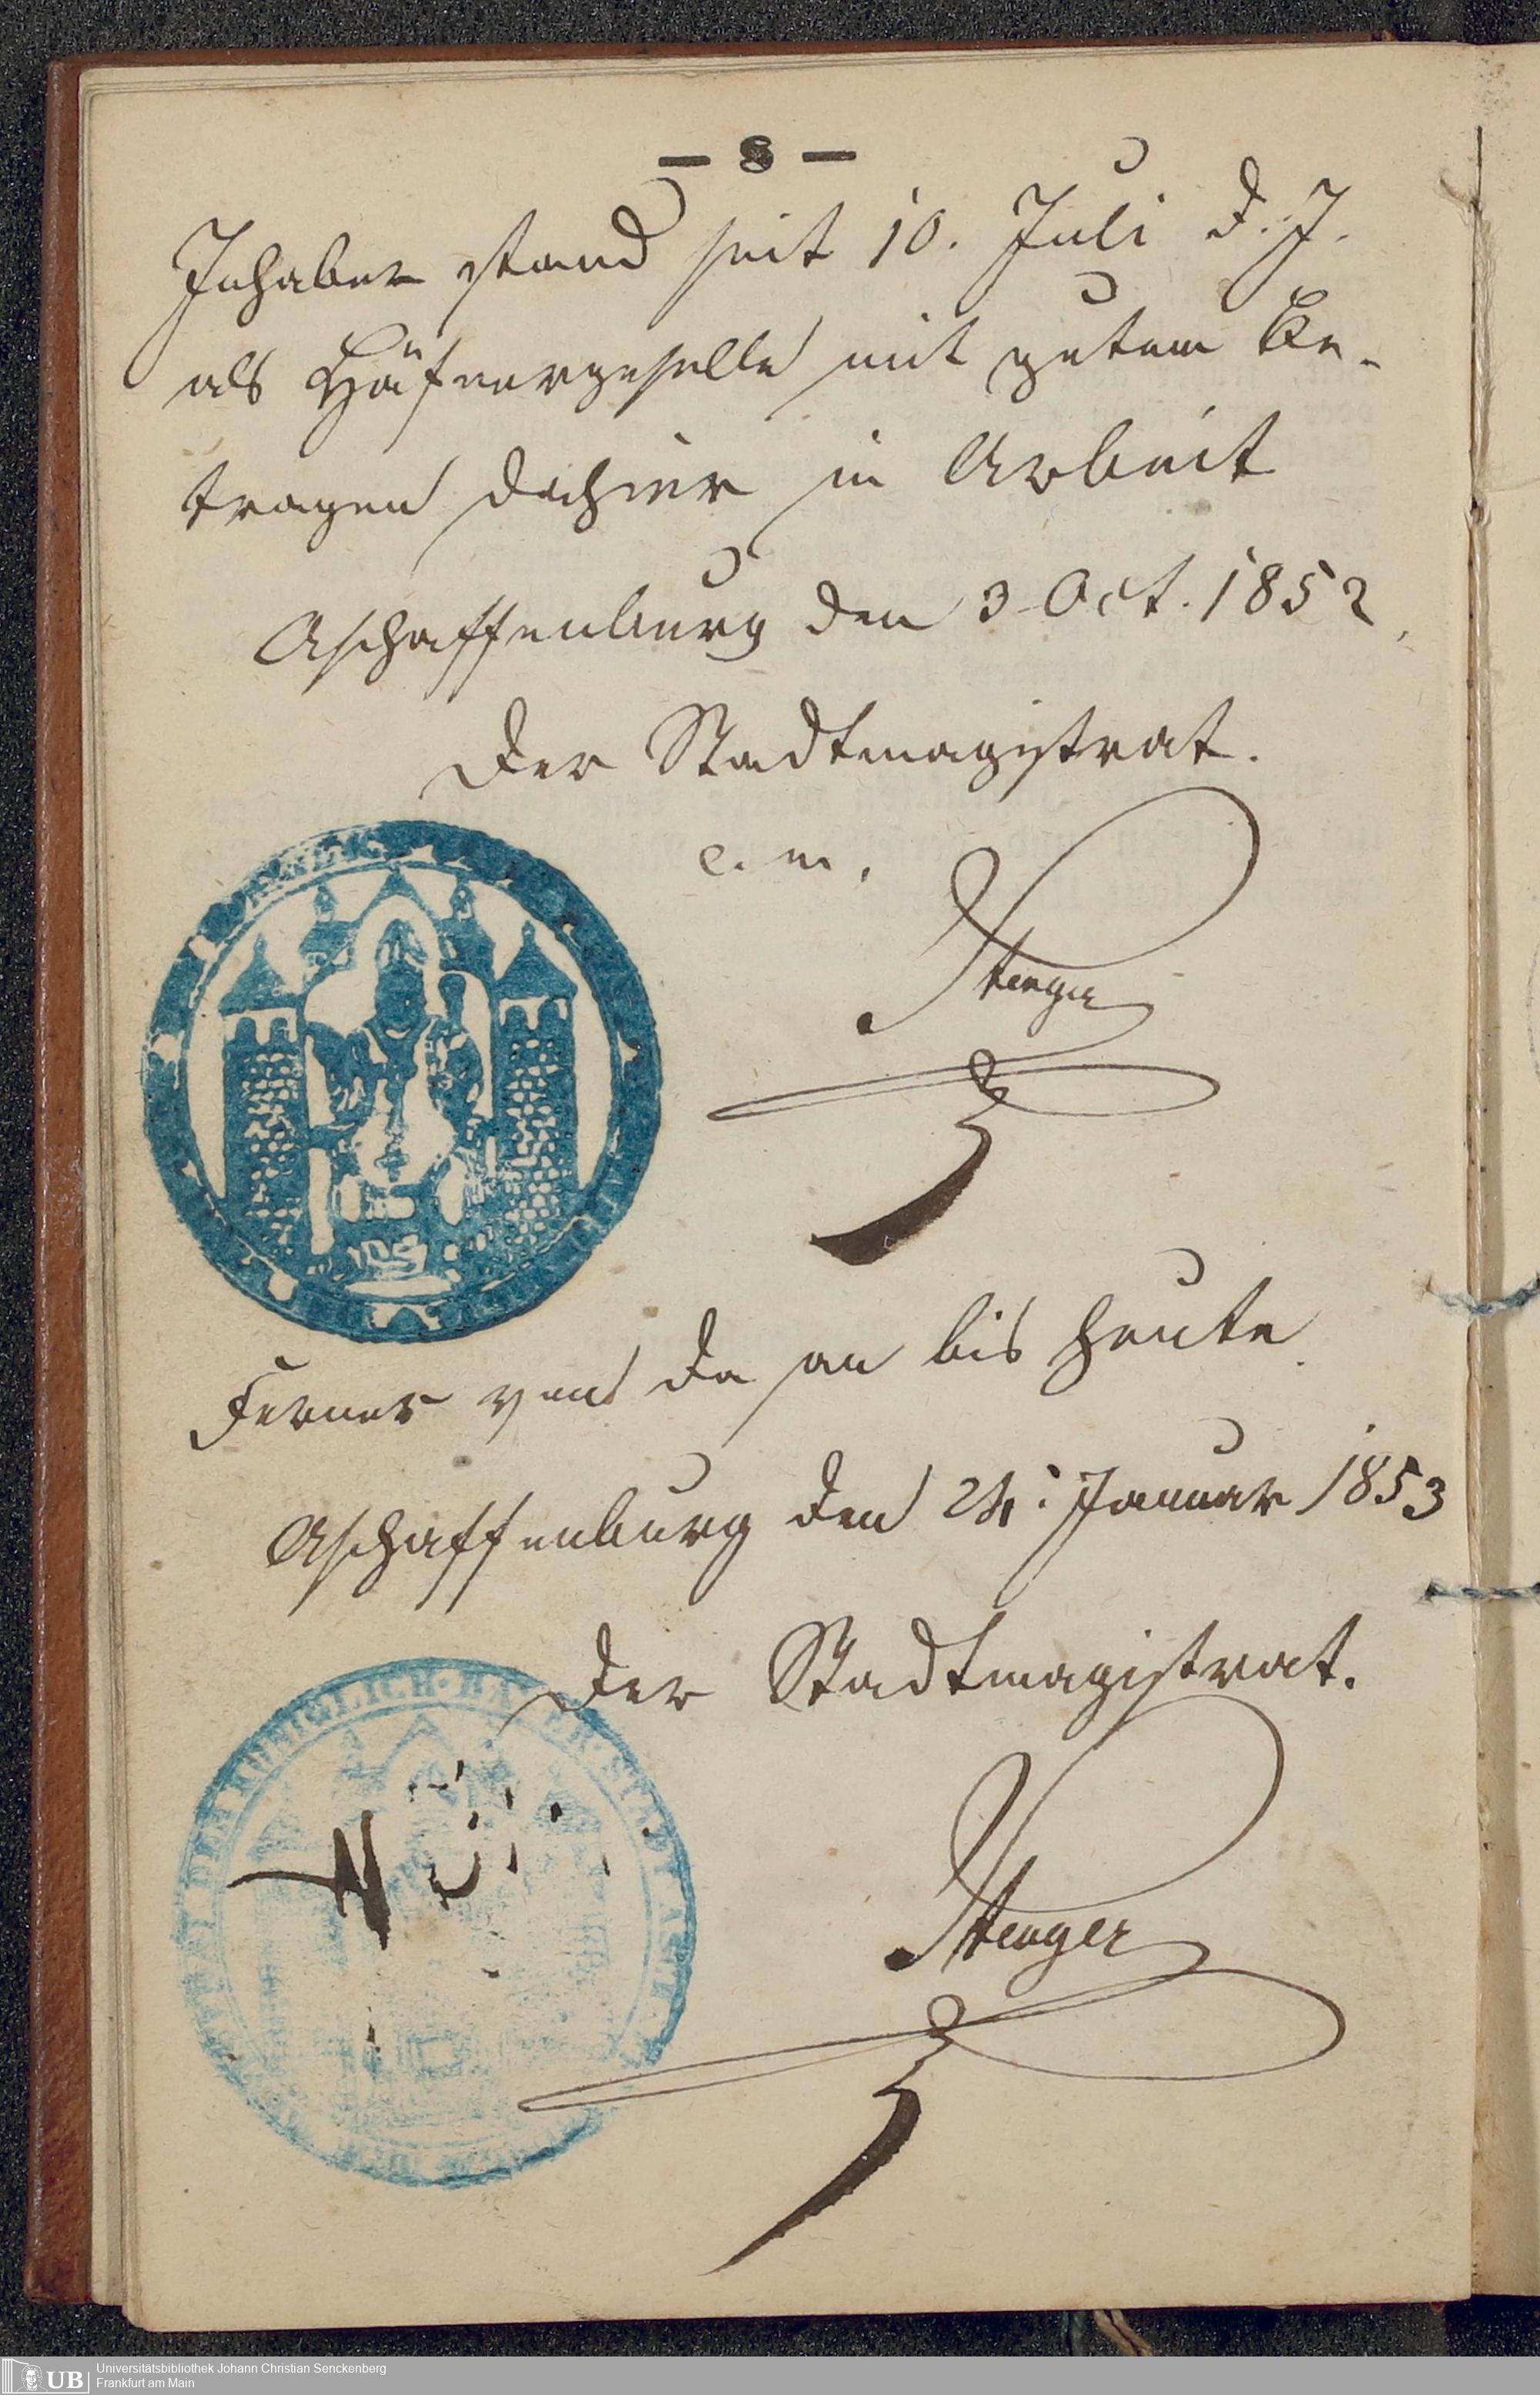 — 8 —
Inhaber stand seit 10. Juli d. J.
als Häfnergeselle mit gutem Be-
tragen dahier in Arbeit
Aschaffenburg den 3 Oct. 1852.
Der Stadtmagistrat.
e. m.
Stenger
Ferner von da an bis heute.
Aschaffenburg den 24. Januar 1853
Der Stadtmagistrat.
Stenger
KOENIGLICH. BAYER. STADT ASCH
UB
Universitätsbibliothek Johann Christian Senckenberg
Frankfurt am Main